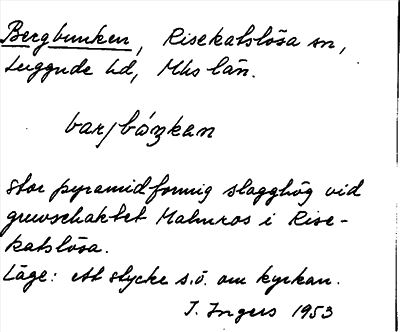 Bergbunken, Risekatslösa sn,
Luggude hd, Mhs län.
bar/bózkan
stor pyramidformig slagghög vid
gruvschaktet Malmros i Rise-
katslösa.
Läge: ett stycke s.ö. om kyrkan.
I. Ingers 1953